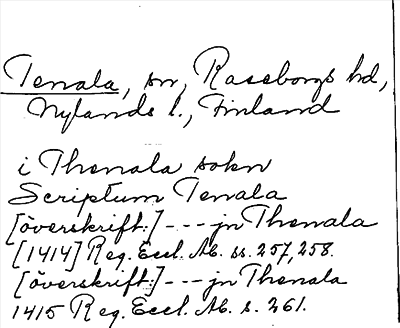 Tenala, sn, Raseborgs hd,
Nylands l., Finland
i Thenala sokn
Scriptum Tenala
[överskrift:] --- jn Thenala
[1414] Reg. Eccl. Ab. ss. 257, 258.
[överskrift:] --- jn Thenala
1415 Reg. Eccl. Ab. s. 261.